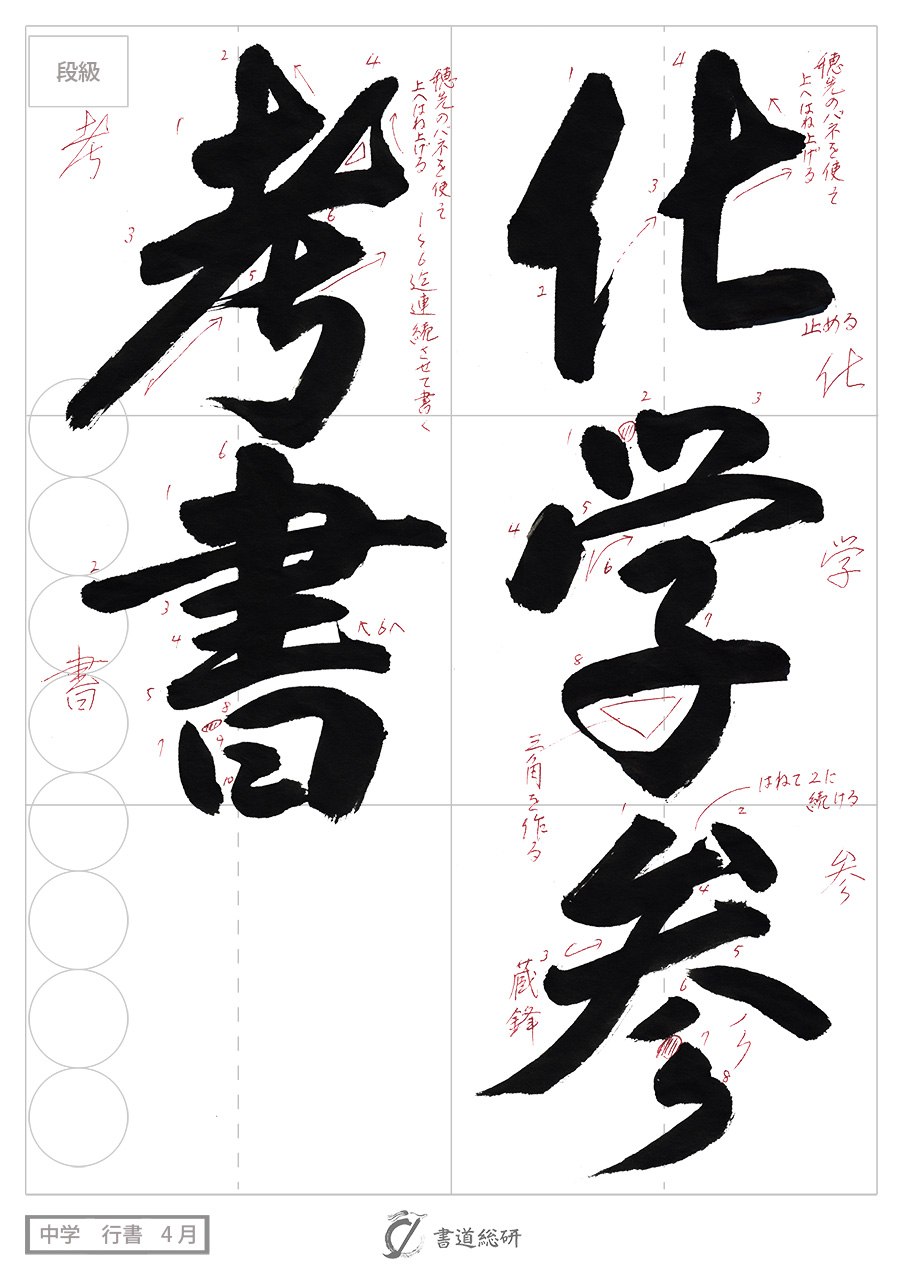 化学参
考書
穂先のバネを使って
上へはね上げる
止める
化
学
三角を作る
はねて2に
続ける
参
蔵鋒
穂先のバネを使って
上へはね上げる
1〜6迄連続させて書く
考
6へ
書
段級
中学 行書 4月
書道総研